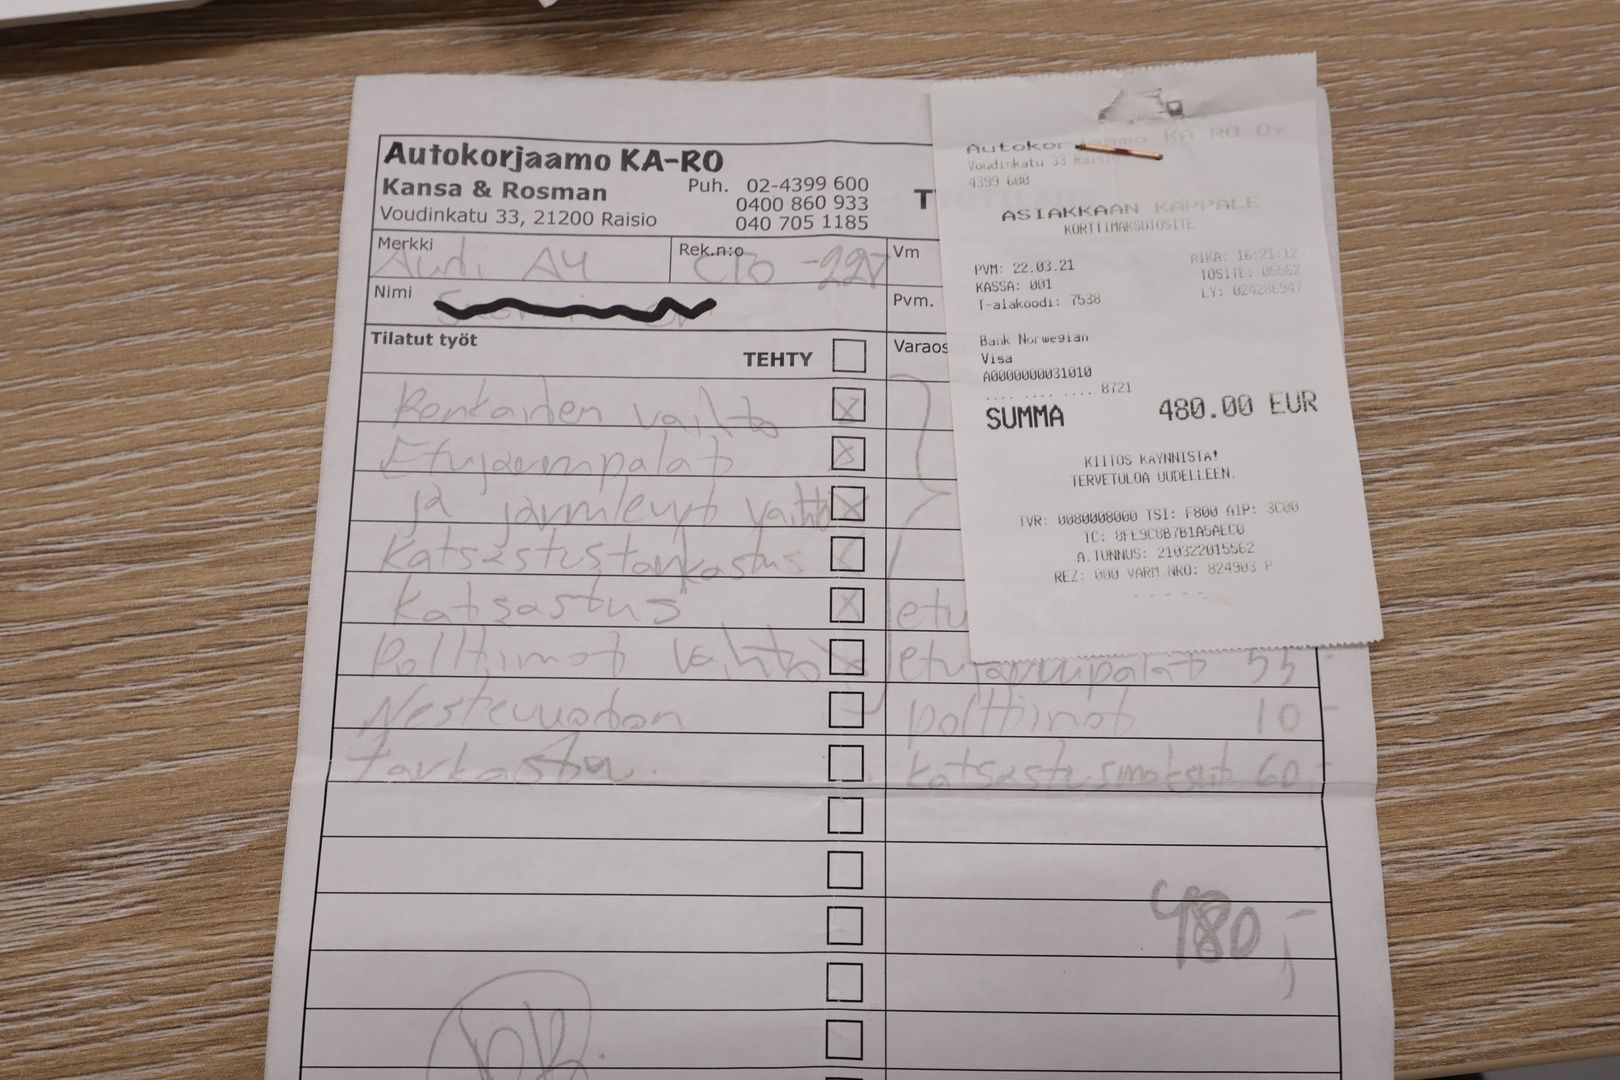 Autokorjaamo KA-RO
Kansa & Rosman
Voudinkatu 33, 21200 Raisio
Puh. 02-4399 600
0400 860 933
040 705 1185
T
Merkki
Audi A4
Rek.n:o
-227
Vm
Nimi
Pvm.
Tilatut työt
TEHTY
Varaos
Renkaiden vaihto
Etujarrupalat
ja jarrulevyt vaihto
Katsastustarkastus
Katsastus
etu
Polttimot vaihto
etujarrupalat 55
Nestevuodon
polttimot 10 -
tarkastus.
katsastusmaksut 60,-
480,-
OK.
Autokorjaamo KA RO Oy
Voudinkatu 33 Raisio
4399 600
ASIAKKAAN KAPPALE
KORTTIMAKSUTOSITE
PVM: 22.03.21
AIKA: 16:21:12
KASSA: 001
TOSITE: 05562
T-alakoodi: 7538
LY: 024286947
Bank Norwegian
Visa
A0000000031010
.... .... .... 8721
SUMMA 480.00 EUR
KIITOS KÄYNNISTÄ!
TERVETULOA UUDELLEEN.
TVR: 0080008000 TSI: F800 AIP: 3C00
TC: 8FE9C8B7B1A5AEC0
A.TUNNUS: 210322015562
REZ: 000 VARM.NRO: 824903 P
- - - - -